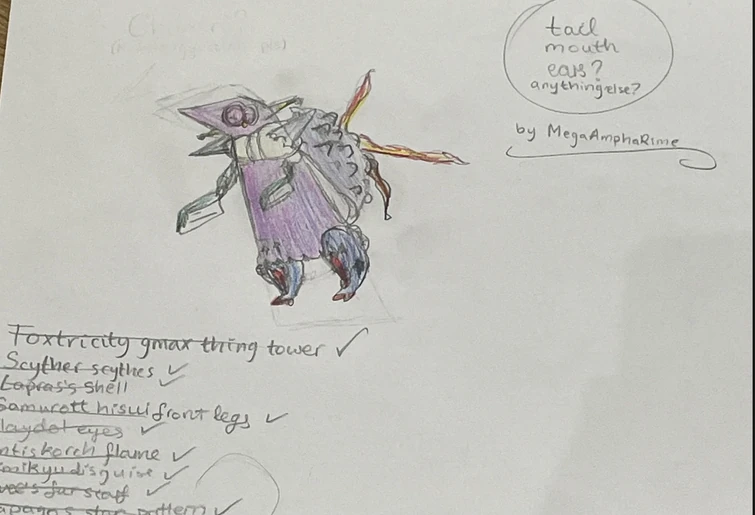 tail
mouth
ears?
anything else?
by MegaAmphaRime
Foxtricity gmax thing tower ✓
Scyther scythes ✓
Lapras's shell ✓
Samurott hisui front legs ✓
laydol eyes ✓
ntiskorch flame ✓
imikyu disguise ✓
fur scarf ✓
pattern ✓